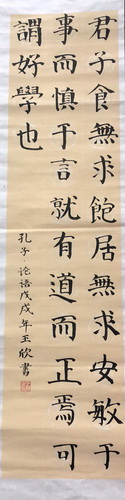 君子食無求飽居無求安敏于
事而慎于言就有道而正焉可
謂好學也
孔子·论语戊戌年王欣書